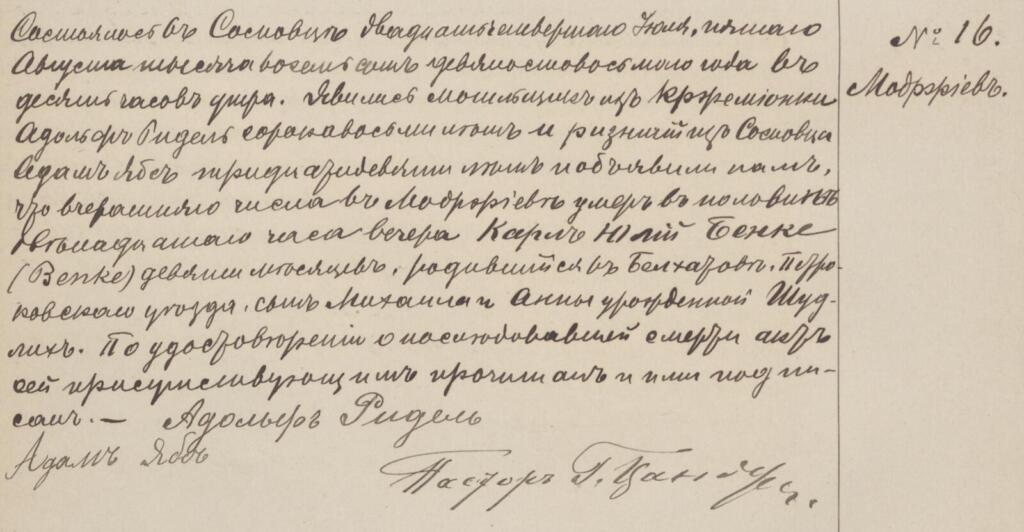 Состоялось въ Сосновцѣ двадцать четвертаго Іюля, пятаго
Августа тысяча восемьсотъ девяностовосьмого года въ
десять часовъ утра. Явились могильщикъ изъ
Адольфъ Ридель сорокавосьми лѣтъ и ризничій изъ Сосновца
Адамъ Ябсъ тридцатидевяти лѣтъ и объявили намъ,
что вчерашняго числа въ Модржіевѣ умеръ въ половинѣ
двѣнадцатаго часа вечера Карлъ Юлій Бенке
(Benke) девяти мѣсяцевъ, родившійся въ Белхатовѣ, Петро-
ковскаго уѣзда, сынъ Михаила и Анны урожденной Шуд-
лихъ. По удостовѣреніи о послѣдовавшей смерти актъ
сей присутствующимъ прочитанъ и ими подпи-
санъ. — Адольфъ Ридель
Адамъ Ябсъ
Пасторъ Г. Цандеръ.
№ 16.
Модржіевъ.